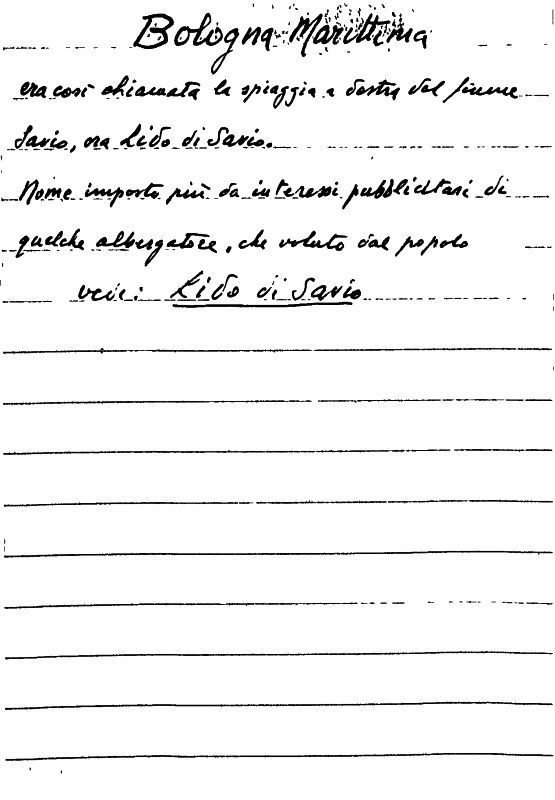 Bologna Marittima
era così chiamata la spiaggia a destra del fiume
Savio, ora Lido di Savio.
Nome imposto più da interessi pubblicitari di
qualche albergatore, che voluto dal popolo
vedi: Lido di Savio